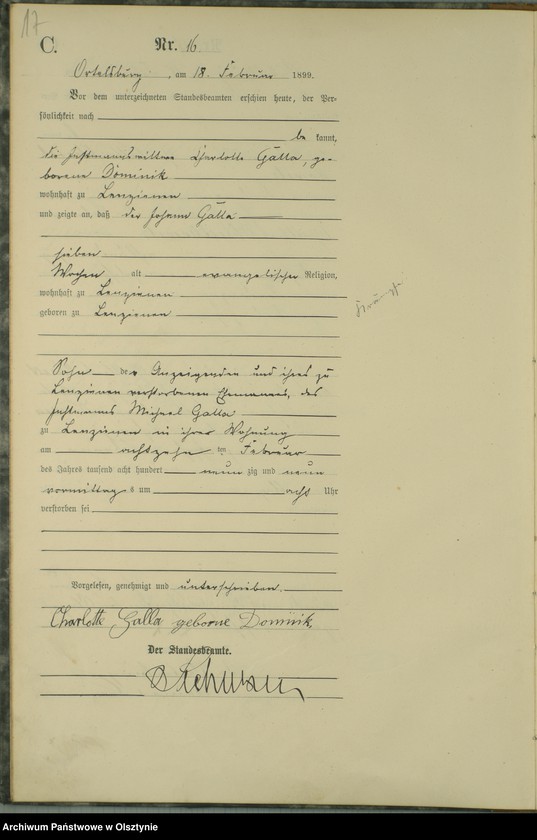 17
C.
Nr. 16.
Ortelsburg, am 18. Februar 1899.
Vor dem unterzeichneten Standesbeamten erschien heute, der Per-
sönlichkeit nach
be kannt,
die Instmannswittwe Charlotte Galla, ge-
borene Dominik
wohnhaft zu Lenzienen
und zeigte an, daß der Johann Galla
sieben
Wochen alt evangelischer Religion,
wohnhaft zu Lenzienen
geboren zu Lenzienen
Sohn der Anzeigenden und ihres zu
Lenzienen verstorbenen Ehemannes, des
Instmanns Michael Galla
zu Lenzienen in ihrer Wohnung
am achtzehn ten Februar
des Jahres tausend acht hundert neun zig und neun
vormittag s um acht Uhr
verstorben sei
Vorgelesen, genehmigt und unterschrieben.
Charlotte Galla geborne Dominik.
Der Standesbeamte.
Archiwum Państwowe w Olsztynie